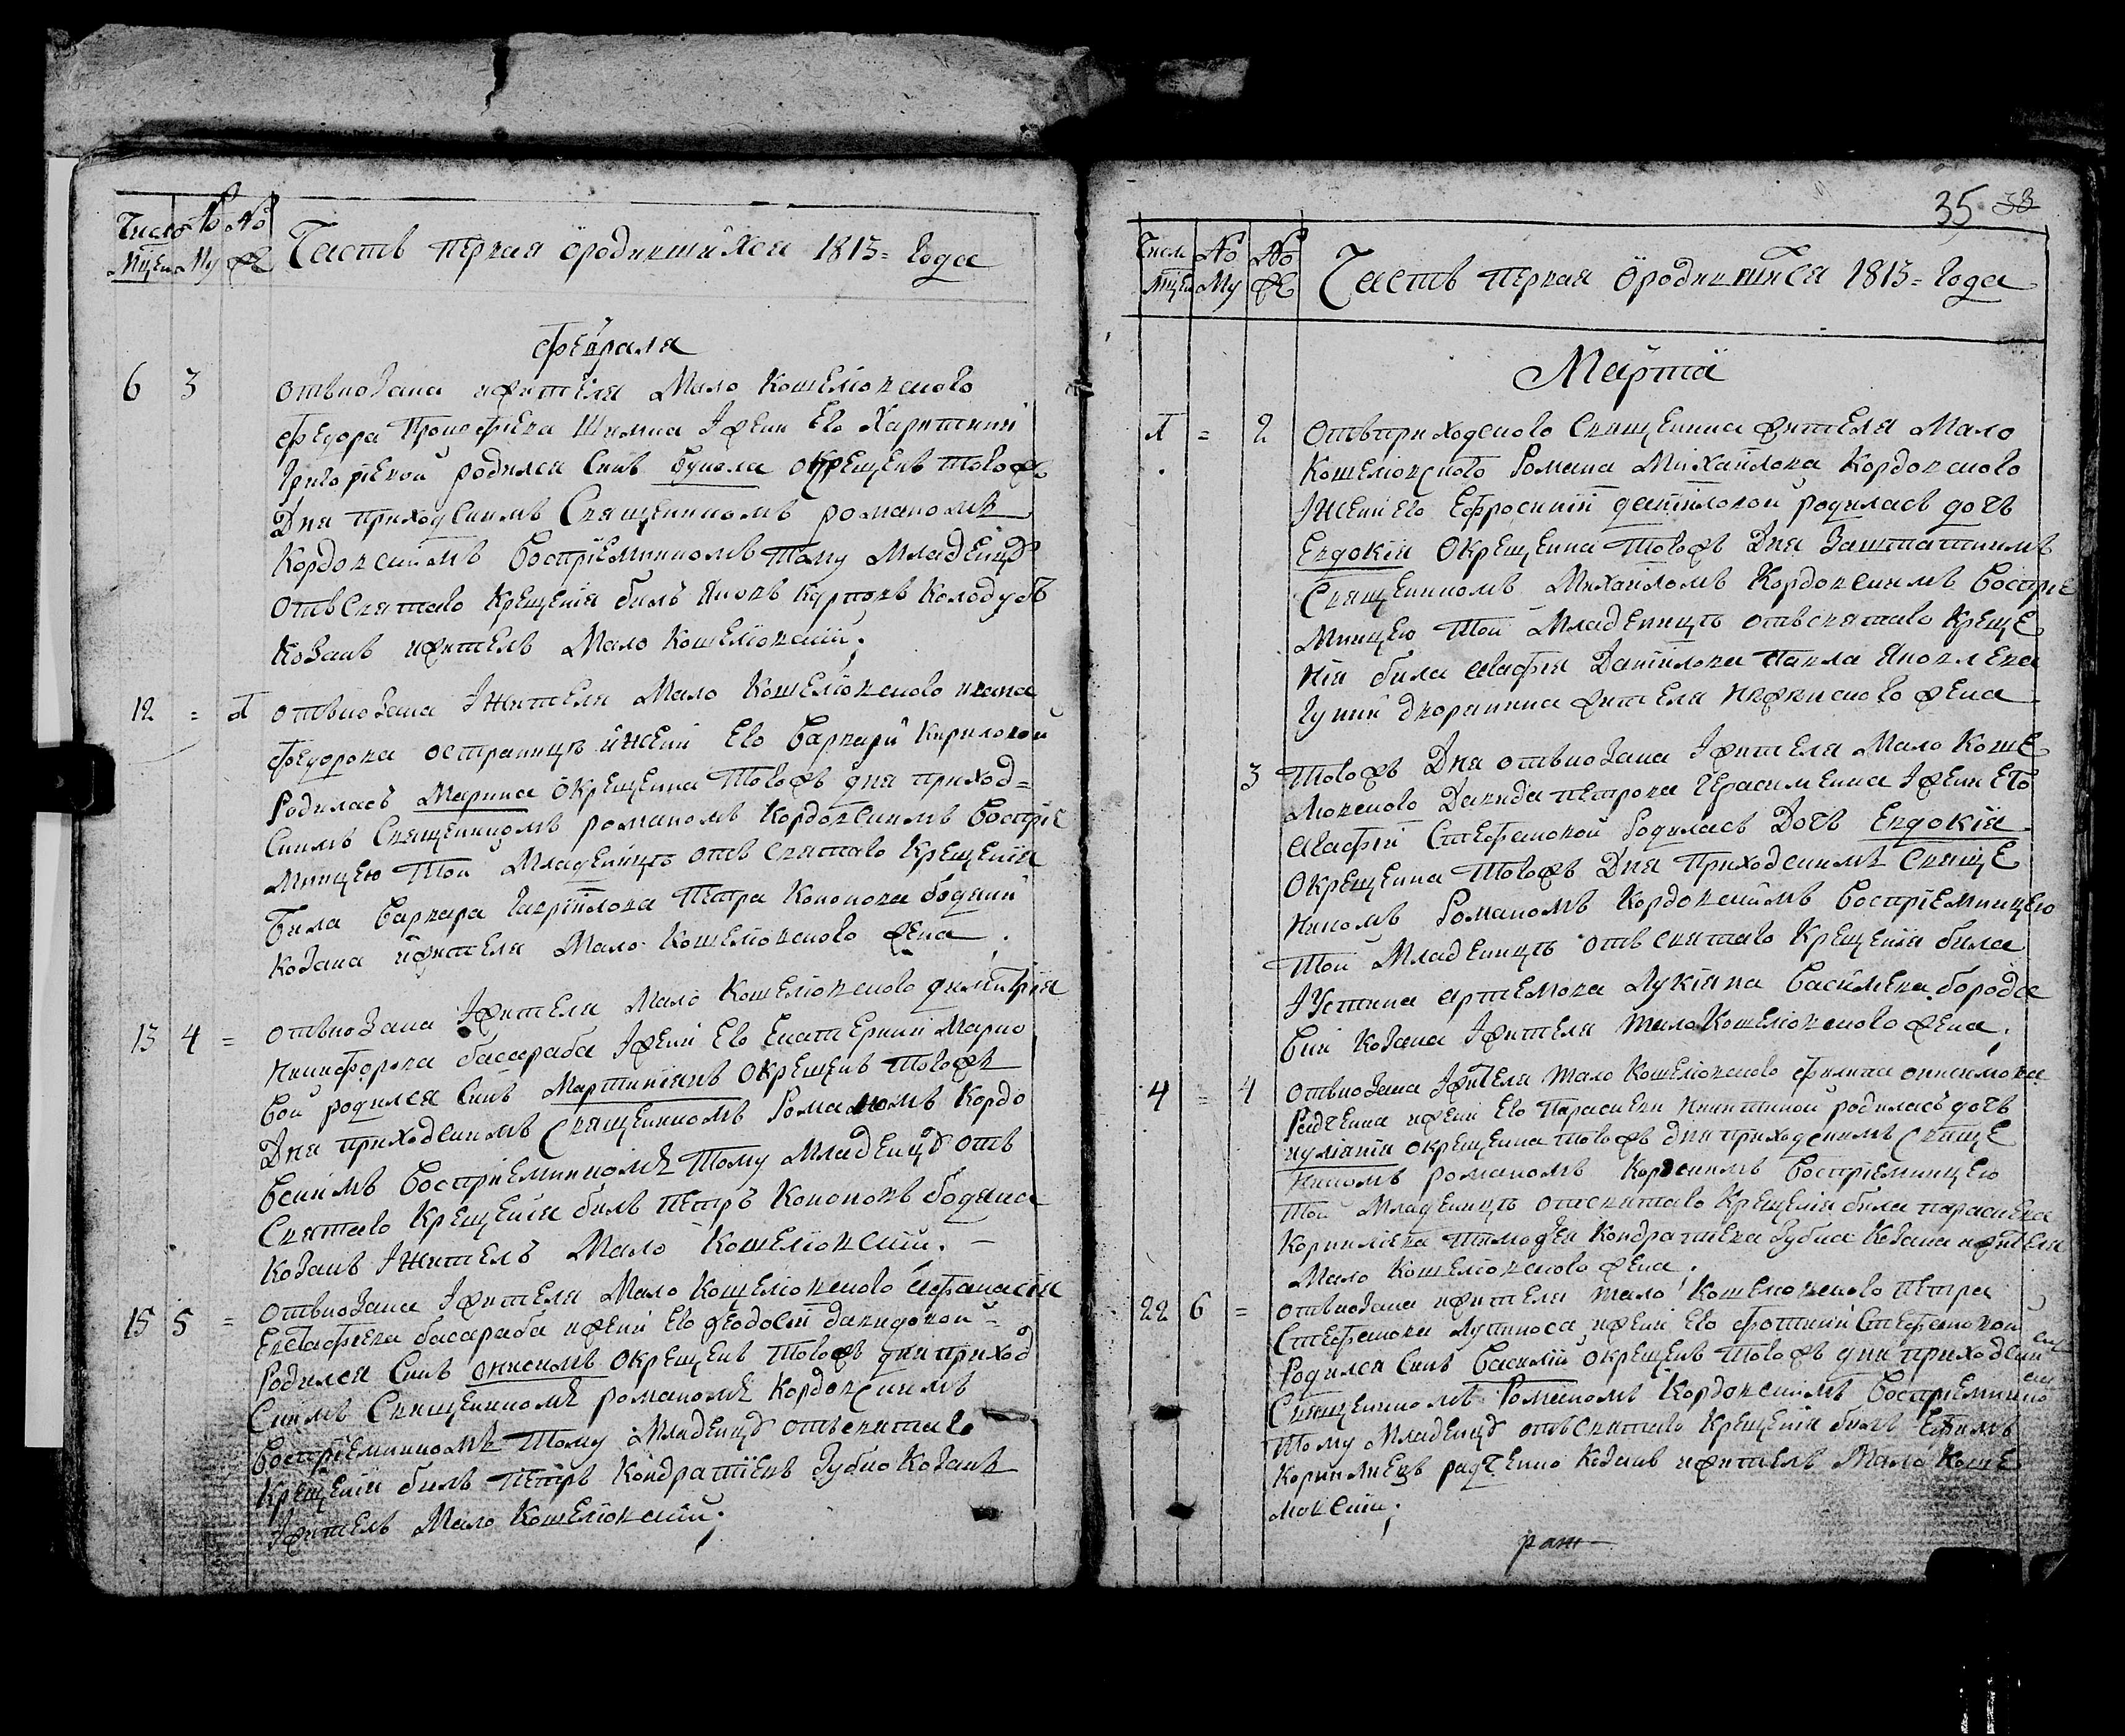 Число № №
Мцей Му Же
Часть первая ородившихся 1813= года
февраля
6 3 отъкозака ижителя Мало Кошелювского
федора Прокофиева Шимка Іжени Его Харитинии
Григориевой родился Синъ Вукола окрещенъ тогожъ
Дня приходскимъ Священникомъ романомъ
Кордовскимъ Воспріемникомъ тому Младенцу
отъ Святаго Крещенія билъ Яковъ Карповъ Колодубъ
Козакъ ижитель Мало Кошелювский.
12 = 1 отъкозака Іжителя Мало Кошелювского ивана
федорова остраницѣ ижени Его Варвари Кириловой
Родилась Марина окрещенна тогожъ дня приход=
Скимъ Священникомъ романомъ Кордовскимъ Воспріе
Мницею той Младеницѣ отъ Святаго Крещенія
била Варвара Гавріилова Петра Кононова бодики
Козака ижителя Мало Кошелювского жена.
13 4 = отъкозака Іжителя Мало Кошелювского димитрія
Никифорова басараба Іжени Его Екатерини Марко
Вой родился Синъ Мартиніанъ окрещенъ тогожъ
Дня приходскимъ Священникомъ Романомъ Кордо
Вскимъ Воспріемникомъ тому Младенцу отъ
Святаго Крещенія билъ Петръ Кононовъ бодика
Козакъ Іжитель Мало Кошелювский. –
15 5 = отъкозака Іжителя Мало Кошелювского афанасія
Евстафиева басараба ижени Его феодосіи давидовой=
Родился Синъ онисимъ окрещенъ тогожъ дня приход
Скимъ Священникомъ романомъ Кордовскимъ
Воспріемникомъ тому Младенцу отъ святаго
Крещенія билъ Петръ Кондратіевъ Зубко Козакъ
Іжитель Мало Кошелювский.
35 33
Числ № №
Мцей Му Же
Часть первая ородившися 1813= года
Марта
1 = 2 отъприходского Священика жителя Мало
Кошелювского Романа Михайлова Кордовского
Іжени Его Ефросиніи даніиловой родилась дочъ
Евдокія окрещенна тогожъ Дня Заштатнимъ
Священникомъ Михайломъ Кордовскимъ Воспріе
Мницею той Младеницѣ отъ святаго Креще
Нія била агафія Даніилова Павла Яковлева
дворанина жителя жена
3 тогожъ Дня отъкозака Іжителя Мало Коше
Лювского Давида Петрова Герасименка Іжени Его
агафіи Стефановой Родилась Дочъ Евдокія
Окрещенна тогожъ Дня Приходскимъ Свяще
Нникомъ Романомъ Кордовскимъ Воспріемницею
той Младеницѣ отъ святаго Крещенія била
Іустина артемова Лукіяна Василіева бородав
Ки Козака Іжителя Мало Кошелювского жена.
4 = 4 отъкозака Іжителя Мало Кошелювского филипа онисимова
Радченка ижени Его Параскеви Никитиной родилась дочъ
иуліанія окрещенна тогожъ дня приходскимъ Свяще
Нникомъ романомъ Кордовскимъ Воспріемницею
той Младеницѣ отъ святаго Крещенія била параскева
Корниліева Тимофея Кондратиева Зубка Козака ижителя
Мало Кошелювского жена.
22 6 = отъкозака ижителя Мало Кошелювского Петра
Стефанова ижени Его фотинии Стефановой
Родился Синъ Василій окрещенъ тогожъ дня приходским
Священникомъ Романомъ Кордовскимъ Воспріемнико
тому Младенцу отъ святаго Крещенія билъ Ефимъ
Корнилиевъ радченко Козакъ ижитель Мало Коше
лювский.